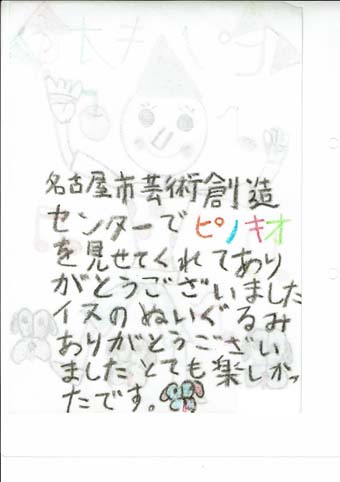 名古屋市芸術創造
センターでピノキオ
を見せてくれてあり
がとうございました
イヌのぬいぐるみ
ありがとうござい
ましたとても楽しかっ
たです。